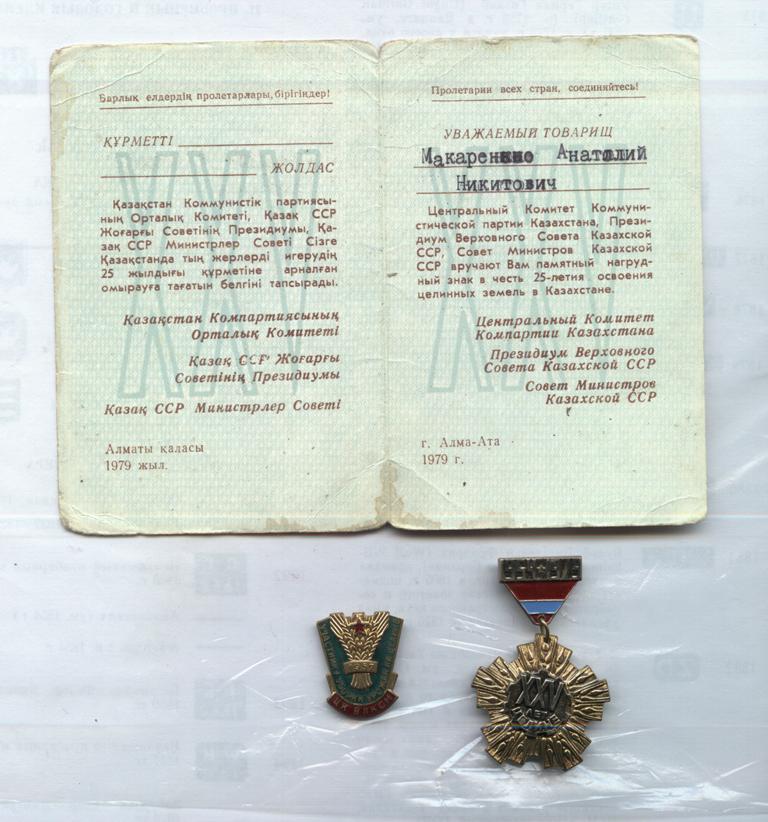 Барлық елдердің пролетарлары, бірігіңдер!
ҚҰРМЕТТІ
ЖОЛДАС
Қазақстан Коммунистік партиясы-
ның Орталық Комитеті, Қазақ ССР
Жоғарғы Советінің Президиумы, Қа-
зақ ССР Министрлер Советі Сізге
Қазақстанда тың жерлерді игерудің
25 жылдығы құрметіне арналған
омырауға тағатын белгіні тапсырады.
Қазақстан Компартиясының
Орталық Комитеті
Қазақ ССР Жоғарғы
Советінің Президиумы
Қазақ ССР Министрлер Советі
Алматы қаласы
1979 жыл.
Пролетарии всех стран, соединяйтесь!
УВАЖАЕМЫЙ ТОВАРИЩ
Макаренко Анатолий
Никитович
Центральный Комитет Коммуни-
стической партии Казахстана, Прези-
диум Верховного Совета Казахской
ССР, Совет Министров Казахской
ССР вручают Вам памятный нагруд-
ный знак в честь 25-летия освоения
целинных земель в Казахстане.
Центральный Комитет
Компартии Казахстана
Президиум Верховного
Совета Казахской ССР
Совет Министров
Казахской ССР
г. Алма-Ата
1979 г.
XXV
ЦК ВЛКСМ
XXV